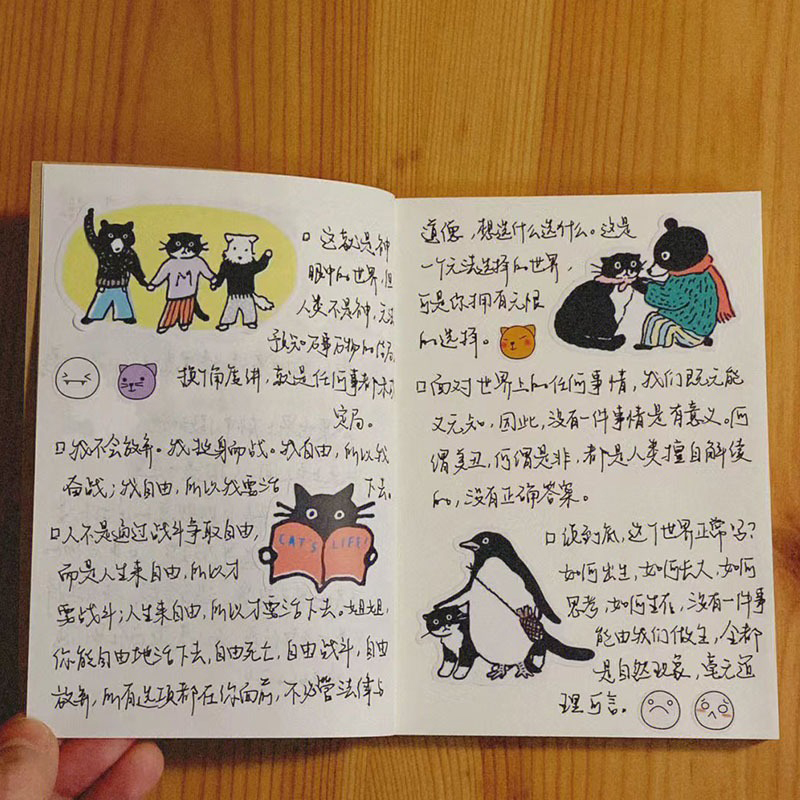 □ 这就是神
眼中的世界,但
人类不是神,无法
预知万事万物的结局。
换个角度讲,就是任何事都未
定局。
□ 我不会放弃。我挺身而战。我自由,所以我
奋战;我自由,所以我要活下去。
CAT'S LIFE!
□ 人不是通过战斗争取自由,
而是人生来自由,所以才
要战斗;人生来自由,所以才要活下去。姐姐,
你能自由地活下去,自由死亡,自由战斗,自由
放弃,所有选项都在你面前,不必管法律与
M
道德,想选什么选什么。这是
一个无法选择的世界,
可是你拥有无限
的选择。
□ 面对世界上的任何事情,我们既无能
又无知,因此,没有一件事情是有意义。何
谓美丑,何谓是非,都是人类擅自解读
的,没有正确答案。
□ 说到底,这个世界正常吗?
如何出生,如何长大,如何
思考,如何生存,没有一件事
能由我们做主,全都
是自然现象,毫无道
理可言。